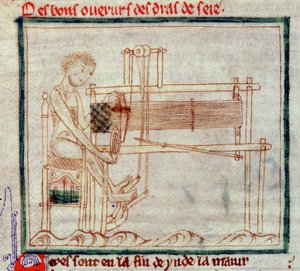 Des bons ouvrurs des dras de seie.
evel sont en la fin de ynde la maiur